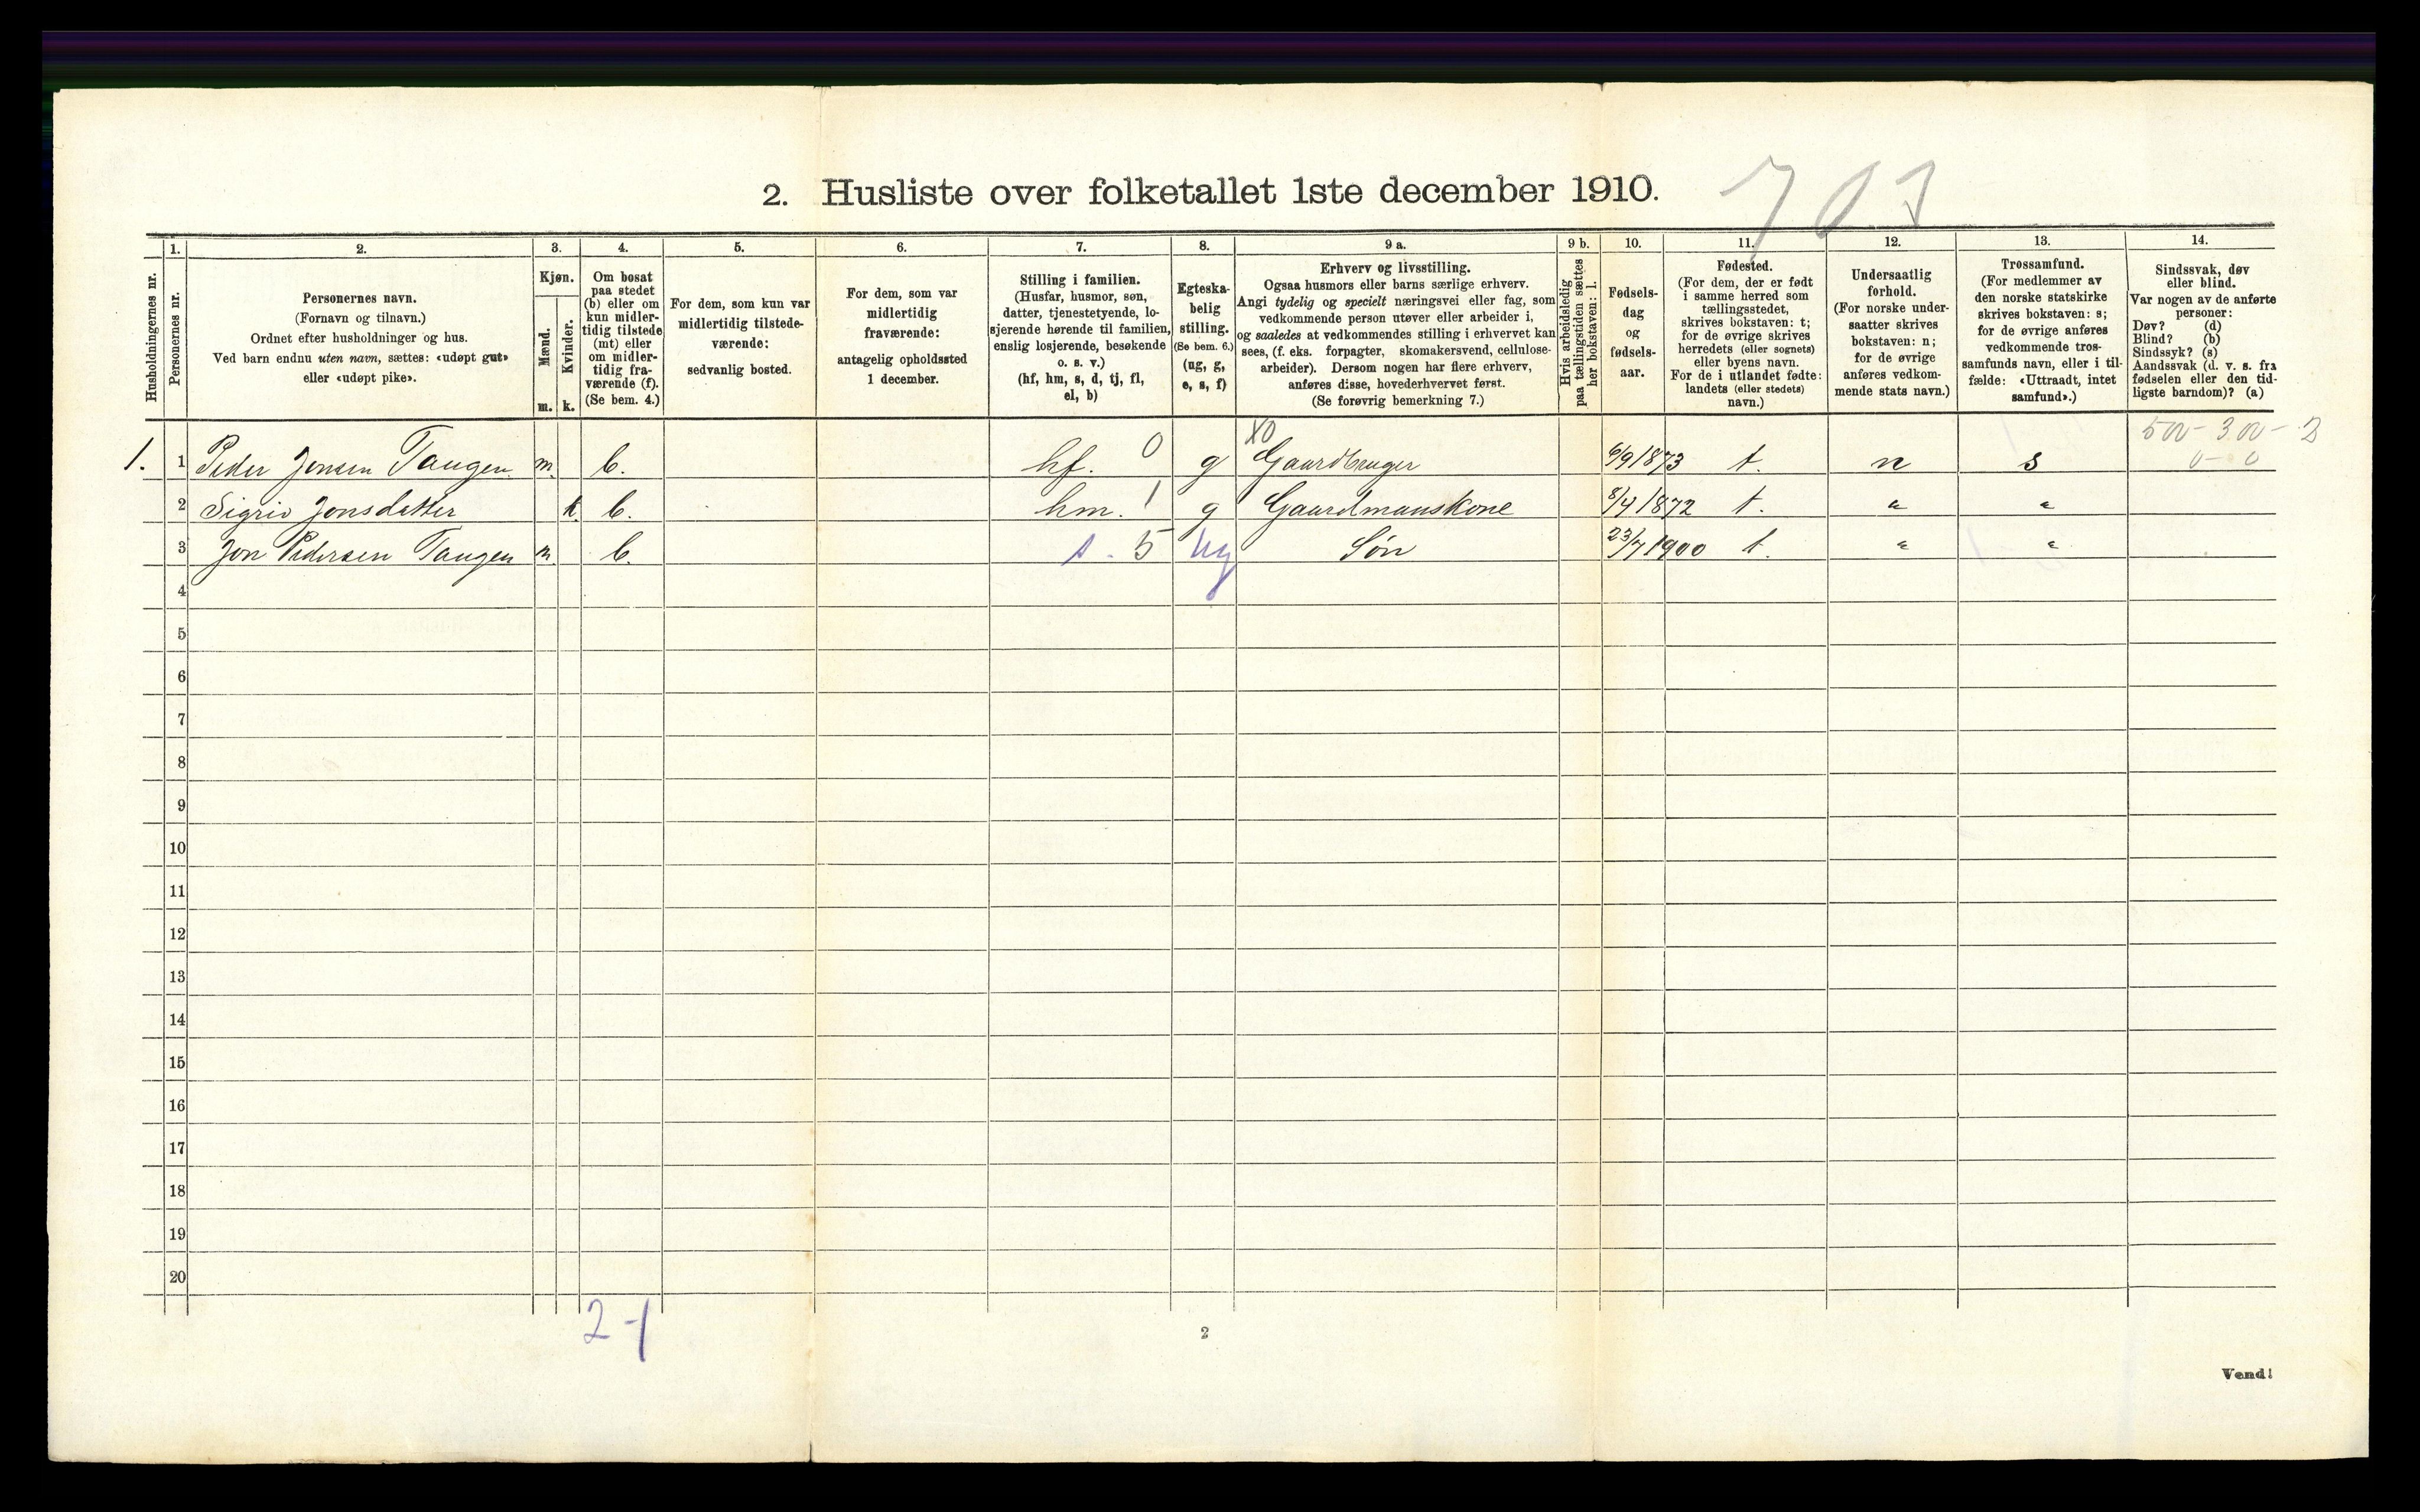 2. Husliste over folketallet 1ste december 1910.
703
1. 2. 3. 4. 5. 6. 7. 8. 9 a. 9 b. 10. 11. 12. 13. 14.
Husholdningernes nr.
Personernes nr.
Personernes navn.
(Fornavn og tilnavn.)
Ordnet efter husholdninger og hus.
Ved barn endnu uten navn, sættes: «udøpt gut»
eller «udøpt pike».
Kjøn.
Mænd.
Kvinder.
m. k.
Om bosat
paa stedet
(b) eller om
kun midler-
tidig tilstede
(mt) eller
om midler-
tidig fra-
værende (f).
(Se bem. 4.)
For dem, som kun var
midlertidig tilstede-
værende:
sedvanlig bosted.
For dem, som var
midlertidig
fraværende:
antagelig opholdssted
1 december.
Stilling i familien.
(Husfar, husmor, søn,
datter, tjenestetyende, lo-
sjerende hørende til familien,
enslig losjerende, besøkende
o. s. v.)
(hf, hm, s, d, tj, fl,
el, b)
Egteska-
belig
stilling.
(Se bem. 6.)
(ug, g,
e, s, f)
Erhverv og livsstilling.
Ogsaa husmors eller barns særlige erhverv.
Angi tydelig og specielt næringsvei eller fag, som
vedkommende person utøver eller arbeider i,
og saaledes at vedkommendes stilling i erhvervet kan
sees, (f. eks. forpagter, skomakersvend, cellulose-
arbeider). Dersom nogen har flere erhverv,
anføres disse, hovederhvervet først.
(Se forøvrig bemerkning 7.)
Hvis arbeidsledig
paa tællingstiden sættes
her bokstaven: l.
Fødsels-
dag
og
fødsels-
aar.
Fødested.
(For dem, der er født
i samme herred som
tællingsstedet,
skrives bokstaven: t;
for de øvrige skrives
herredets (eller sognets)
eller byens navn.
For de i utlandet fødte:
landets (eller stedets)
navn.)
Undersaatlig
forhold.
(For norske under-
saatter skrives
bokstaven: n;
for de øvrige
anføres vedkom-
mende stats navn.)
Trossamfund.
(For medlemmer av
den norske statskirke
skrives bokstaven: s;
for de øvrige anføres
vedkommende tros-
samfunds navn, eller i til-
fælde: «Uttraadt, intet
samfund».)
Sindssvak, døv
eller blind.
Var nogen av de anførte
personer:
Døv? (d)
Blind? (b)
Sindssyk? (s)
Aandssvak (d. v. s. fra
fødselen eller den tid-
ligste barndom)? (a)
X0 500-300-2
1. 1 Peder Jonsen Tangen m. b. hf. 0 g Gaardbruger 6/9 1873 t. n s 0-0
2 Sigrid Jonsdatter k b. hm. 1 g Gaardmanskone 8/4 1872 t. " "
3 Jon Pedersen Tangen m. b. s. 5 ug Søn 23/7 1900 t. " "
4
5
6
7
8
9
10
11
12
13
14
15
16
17
18
19
20
2-1
2
Vend!